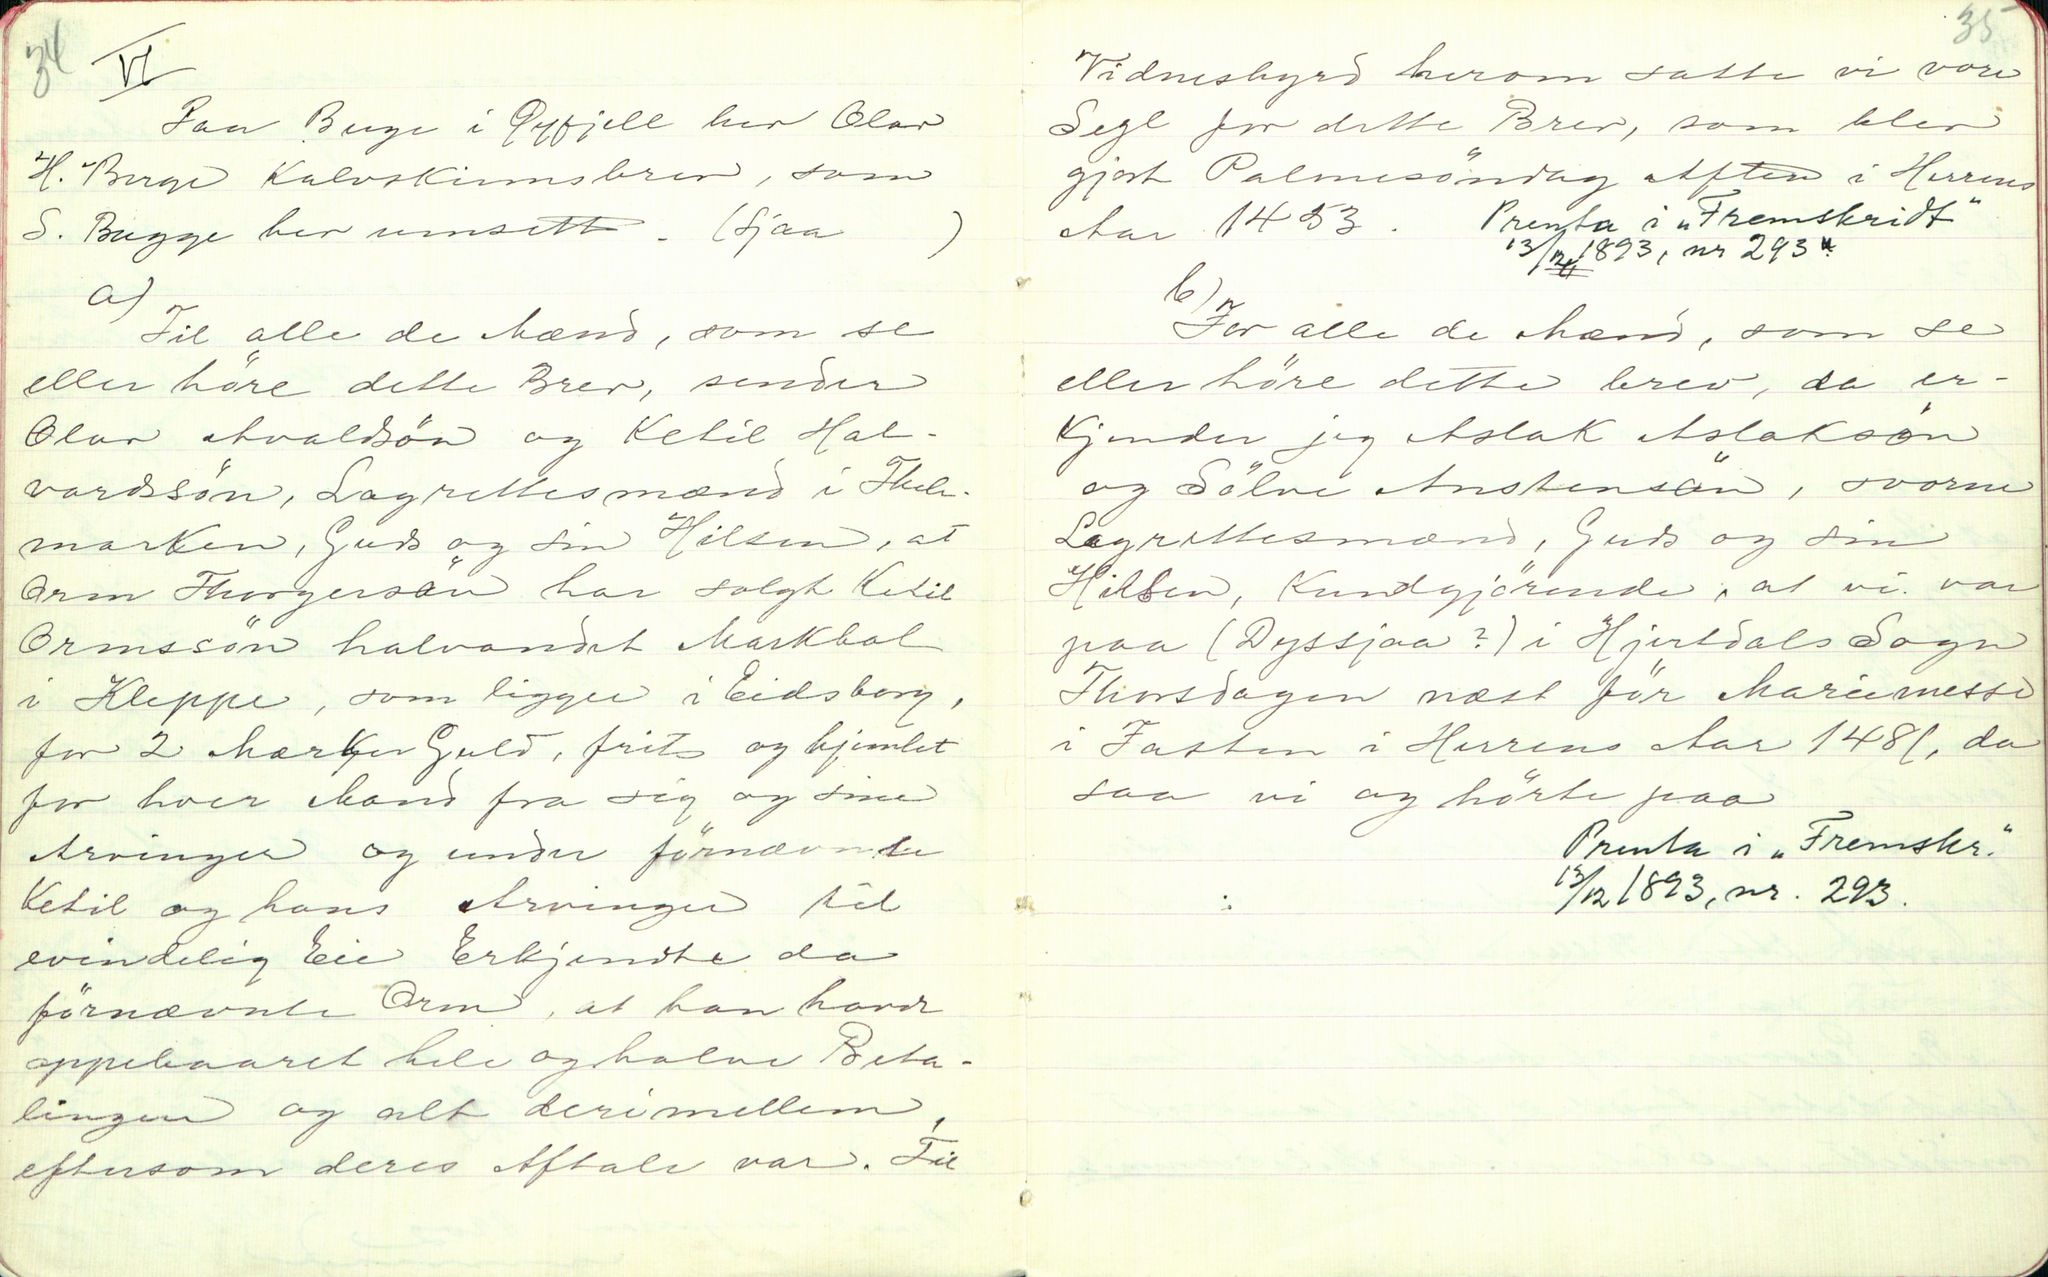 34
VI
Paa Berge i Øyfjell her Olav
H. Berge Kalvskinnsbrev, som
S. Bugge hev umsett. (Sjaa )
a)
Til alle de Mænd, som se
eller höre dette Brev, sender
Olav Avaldsön og Ketil Hal-
vardssön, Lagrettesmænd i Thele-
marken, Guds og sin Hilsen, at
Orm Thorgersön har solgt Ketil
Ormssön halvandet Markbol
i Kleppe, som ligger i Eidsborg,
for 2 Marker Guld, frit og hjemlet
for hver Mand fra sig og sine
Arvinger og under förnævnte
Ketil og hans Arvinger til
evindelig Eie Erkjendte da
förnævnte Orm, at han havde
oppebaaret hele og halve Beta-
lingen og alt derimellem,
eftersom deres Aftale var. Til
35
Vidnesbyrd herom satte vi vore
Segl for dette Brev, som blev
gjort Palmesöndag Aften i Herrens
Aar 1453. Prenta i „Fremskridt"
13/12 1893, nr 293".
b)
For alle de Mænd, som se
eller höre dette brev, da er-
kjender jeg Aslak Aslaksön
og Sölve Anstensön, svorne
Lagrettesmænd, Guds og sin
Hilsen, Kundgjörende, at vi var
paa (Dyssjaa?) i Hjertdals Sogn
Thorsdagen næst för Mariemesse
i Fasten i Herrens Aar 1481, da
saa vi og hörte paa
:
Prenta i „Fremskr."
13/12 1893, nr. 293.